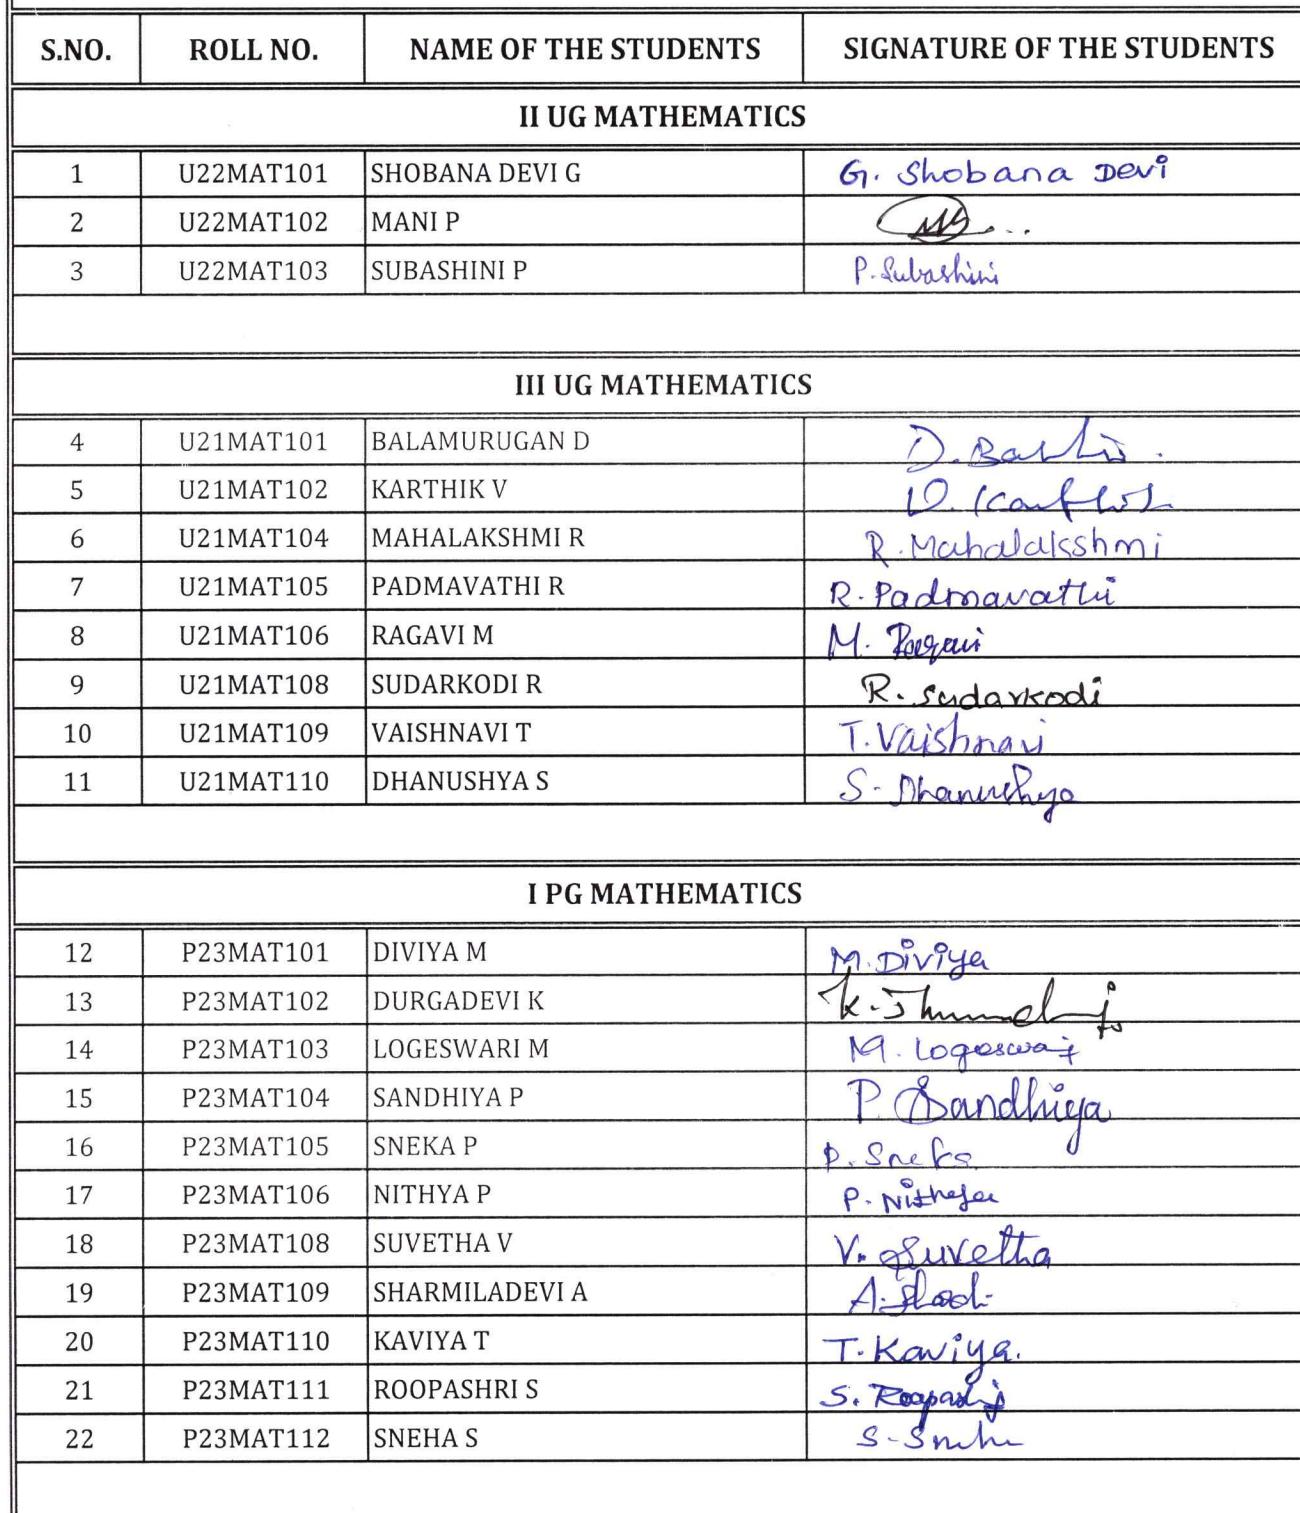 S.NO. ROLL NO. NAME OF THE STUDENTS SIGNATURE OF THE STUDENTS
II UG MATHEMATICS
1 U22MAT101 SHOBANA DEVI G G. Shobana Devi
2 U22MAT102 MANI P
3 U22MAT103 SUBASHINI P P. Subashini
III UG MATHEMATICS
4 U21MAT101 BALAMURUGAN D D.
5 U21MAT102 KARTHIK V
6 U21MAT104 MAHALAKSHMI R R. Mahalakshmi
7 U21MAT105 PADMAVATHI R R. Padmavathi
8 U21MAT106 RAGAVI M M. Ragavi
9 U21MAT108 SUDARKODI R R. Sudarkodi
10 U21MAT109 VAISHNAVI T T. Vaishnavi
11 U21MAT110 DHANUSHYA S S. Dhanushya
I PG MATHEMATICS
12 P23MAT101 DIVIYA M M. Diviya
13 P23MAT102 DURGADEVI K K.
14 P23MAT103 LOGESWARI M M. Logeswari
15 P23MAT104 SANDHIYA P P. Sandhiya
16 P23MAT105 SNEKA P P. Sneka
17 P23MAT106 NITHYA P P. Nithya
18 P23MAT108 SUVETHA V V. Suvetha
19 P23MAT109 SHARMILADEVI A A.
20 P23MAT110 KAVIYA T T. Kaviya.
21 P23MAT111 ROOPASHRI S S. Roopashri
22 P23MAT112 SNEHA S S. Sneha